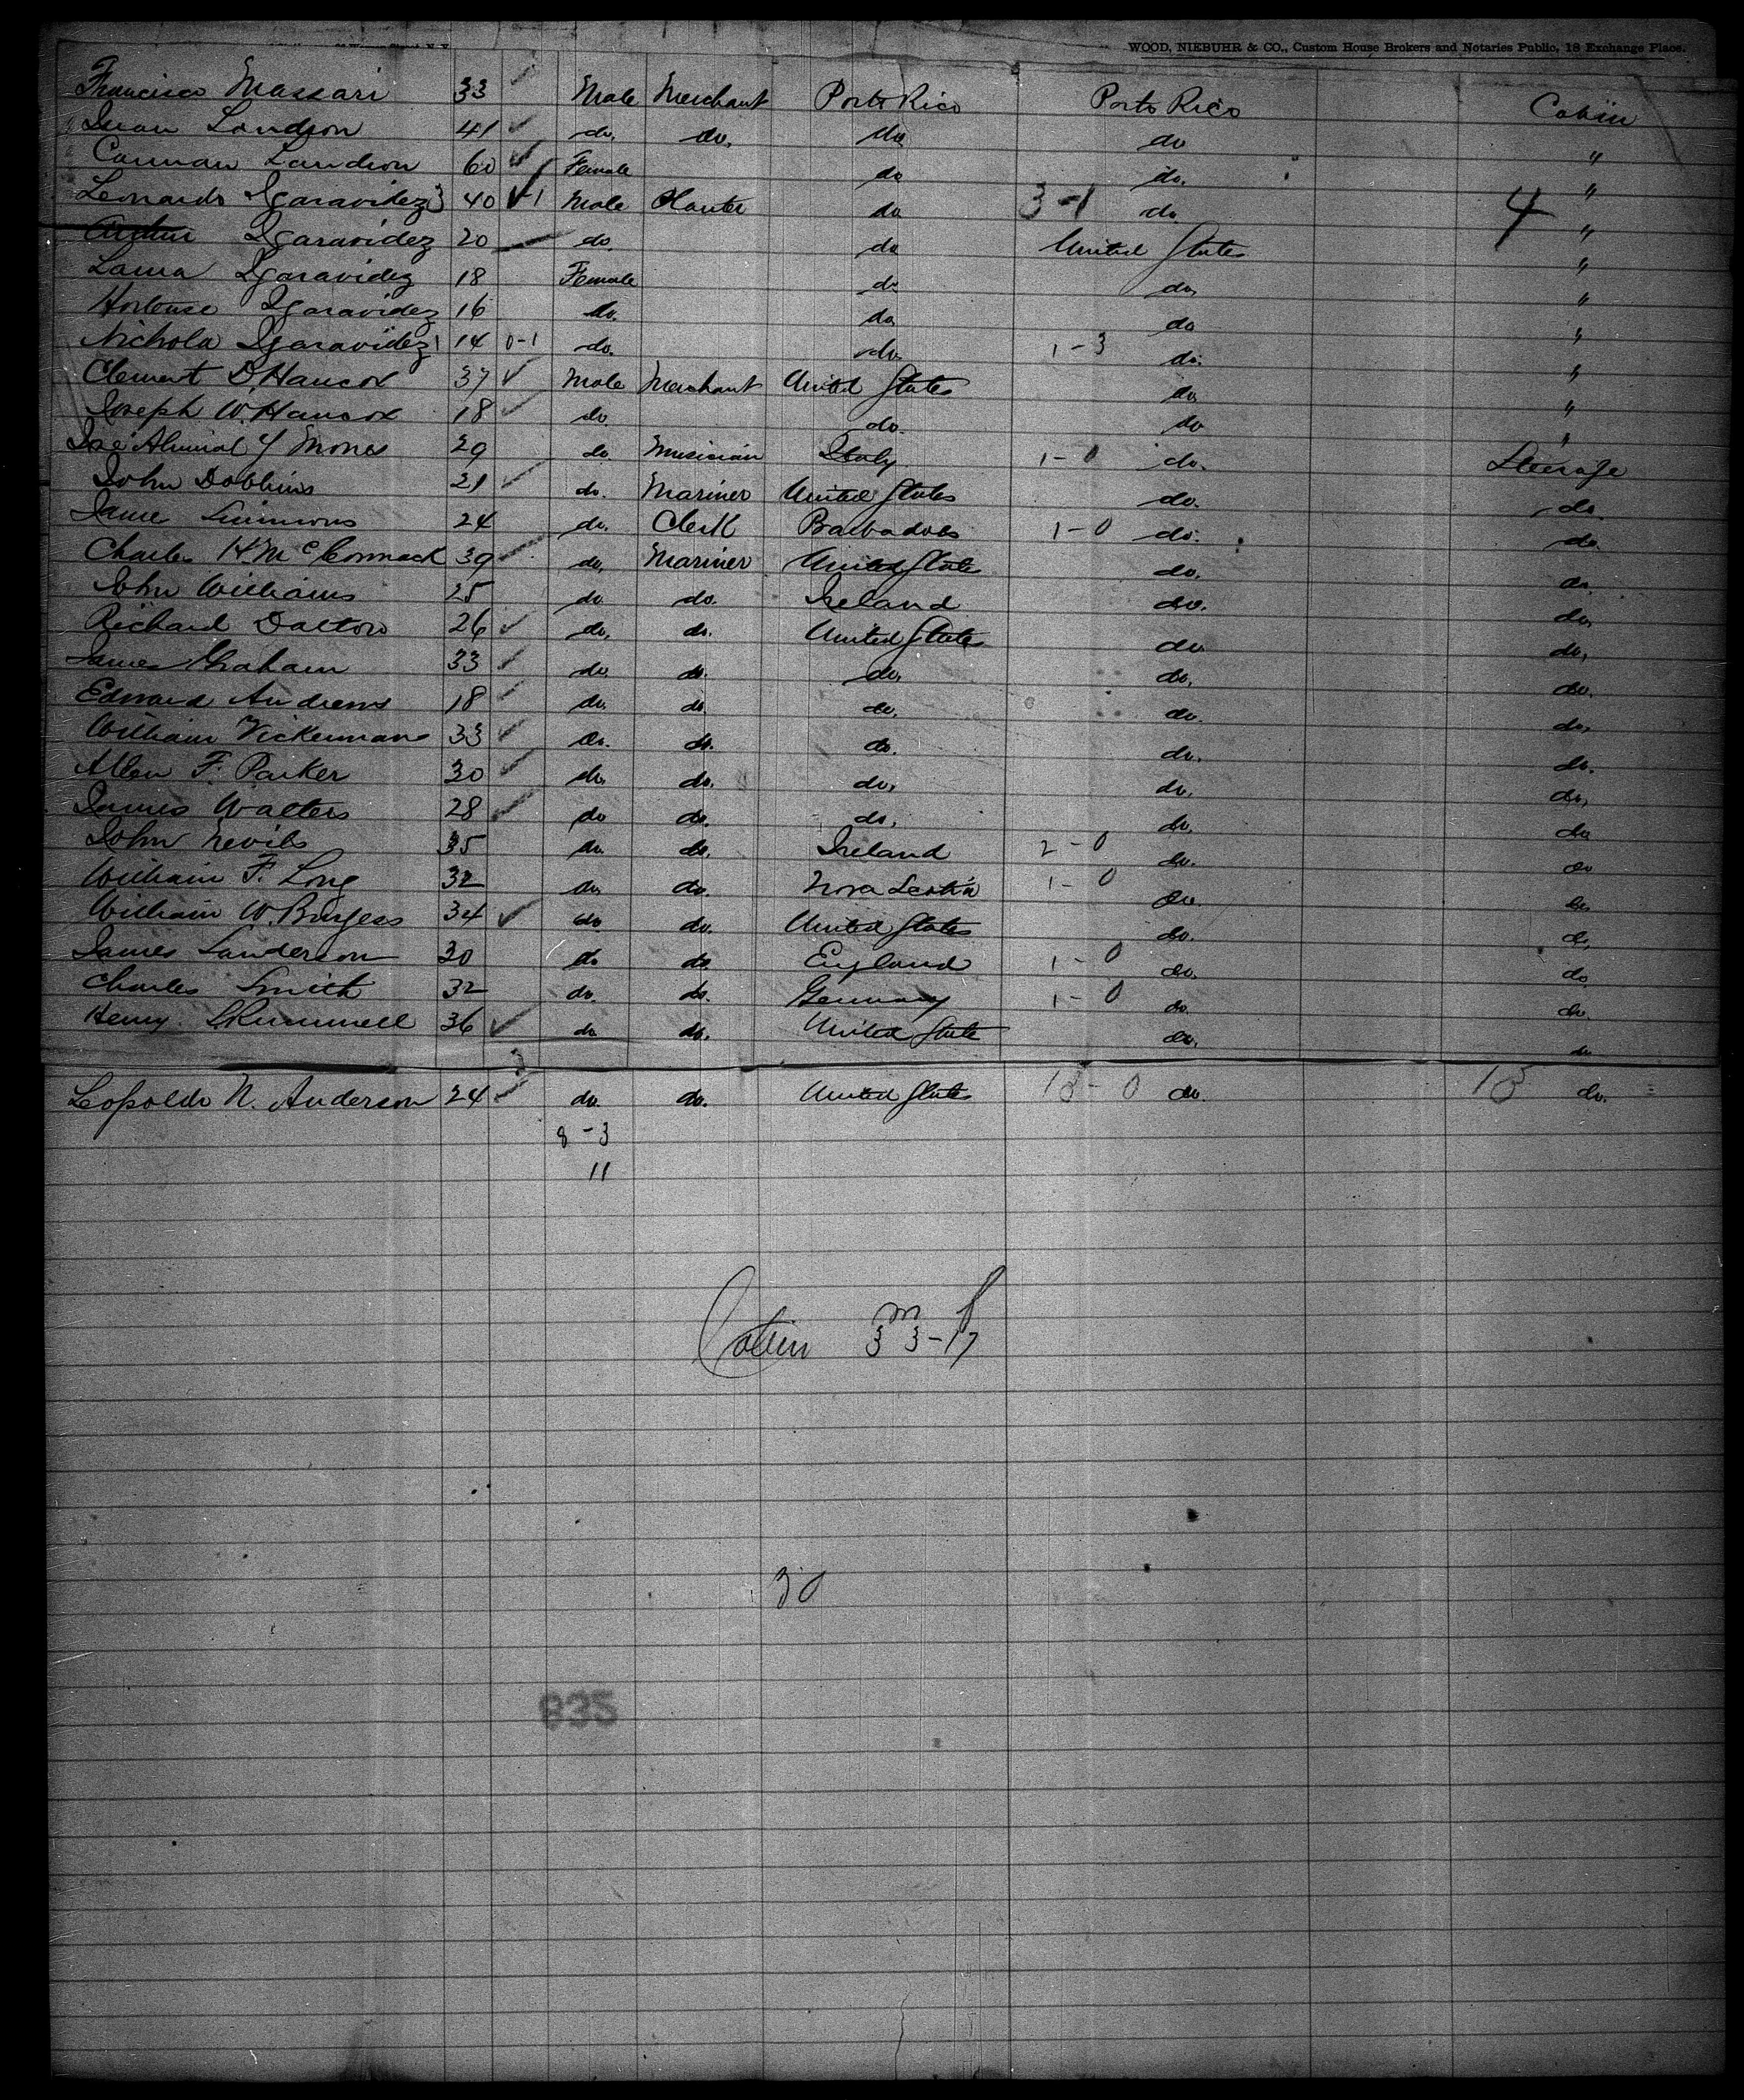 WOOD, NIEBUHR & CO., Custom House Brokers and Notaries Public, 18 Exchange Place.
Francisco Massari 33 Male Merchant Porto Rico Porto Rico Cabin
Juan Landron 41 do. do. do do "
Carman Landron 60 Female do do. "
Leonardo Igaravidez 3 40 1 Male Planter do 3-1 do 4 "
Igaravidez 20 do. do United States "
Laura Igaravidez 18 Female do do "
Hortense Igaravidez 16 do. do do "
Nichola Igaravidez 1 14 0-1 do. do. 1-3 do. "
Clement D. Hancox 37 Male Merchant United States do "
Joseph W. Hancox 18 do. do. do "
José Y Mones 29 do. Musician Italy 1-0 do. Steerage
John Dobbins 21 do. Mariner United States do. do
Jame Simmons 24 do. Clerk Barbadoes 1-0 do. do.
Charles H. McCormack 39 do. Mariner United State do. do.
John Williams 25 do do. Ireland do. do
Richard Dalton 26 do. do. United State do do.
James Graham 33 do do. do do. do.
Edward Andrews 18 do. do do. do. do.
William Vickerman 33 do. do. do. do. do.
Allen F. Parker 30 do. do. do. do. do.
James Walters 28 do do. do. do. do
John Nevils 35 do. do. Ireland 2-0 do. do
William F. Long 32 do. do. Nova Scotia 1-0 do. do
William W. Burgess 34 do do. United States do. do
James Sanderson 30 do do England 1-0 do. do
Charles Smith 32 do. do. Germany 1-0 do do
Henry 36 do do. United State do. do
Leopoldo N. Anderson 24 do. do. United State 18-0 do. 18 do.
8-3
11
m f
Cabin 33-17
30
835